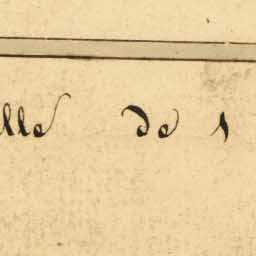 lle de 1